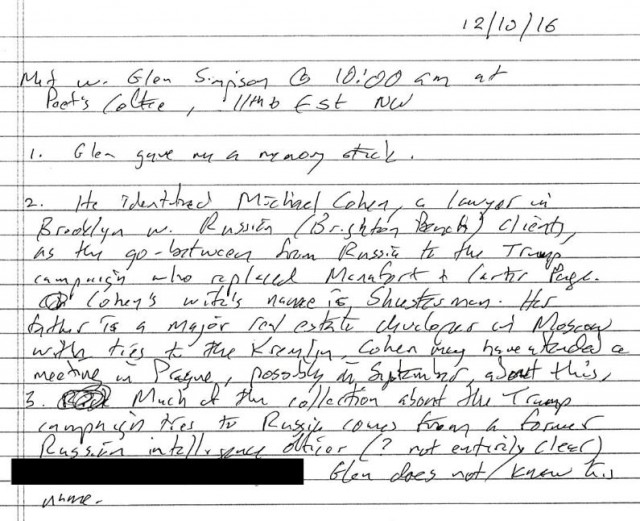 12/10/16
Met w. Glen Simpson @ 10:00 am at
Peet's Coffee, 11th & E St NW
1. Glen gave me a memory stick.
2. He identified Michael Cohen, a lawyer in
Brooklyn w. Russian (Brighton Beach) clients,
as the go-between from Russia to the Trump
campaign who replaced Manafort + Carter Page.
Cohen's wife's name is Shusterman. Her
father is a major real estate developer in Moscow
with ties to the Kremlin. Cohen may have attended a
meeting in Prague, possibly in September, about this,
3. Much of the collection about the Trump
campaign ties to Russia comes from a former
Russian intelligence officer (? not entirely clear)
Glen does not know his
name.